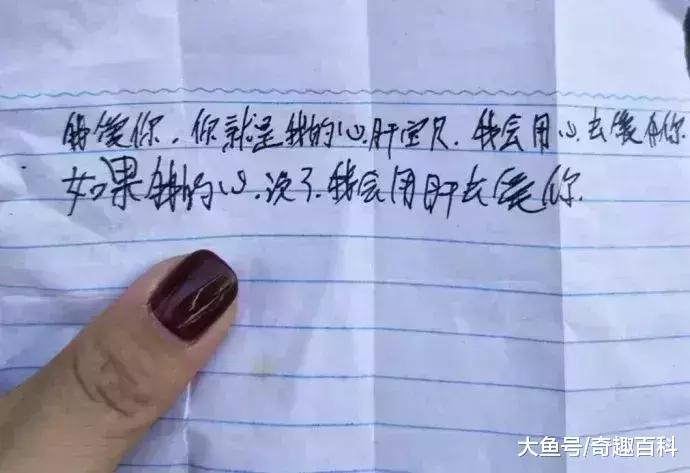 我爱你。你就是我的心.肝宝贝.我会用心.去爱你.
如果我的心.没了.我会用肝去爱你.
大鱼号/奇趣百科